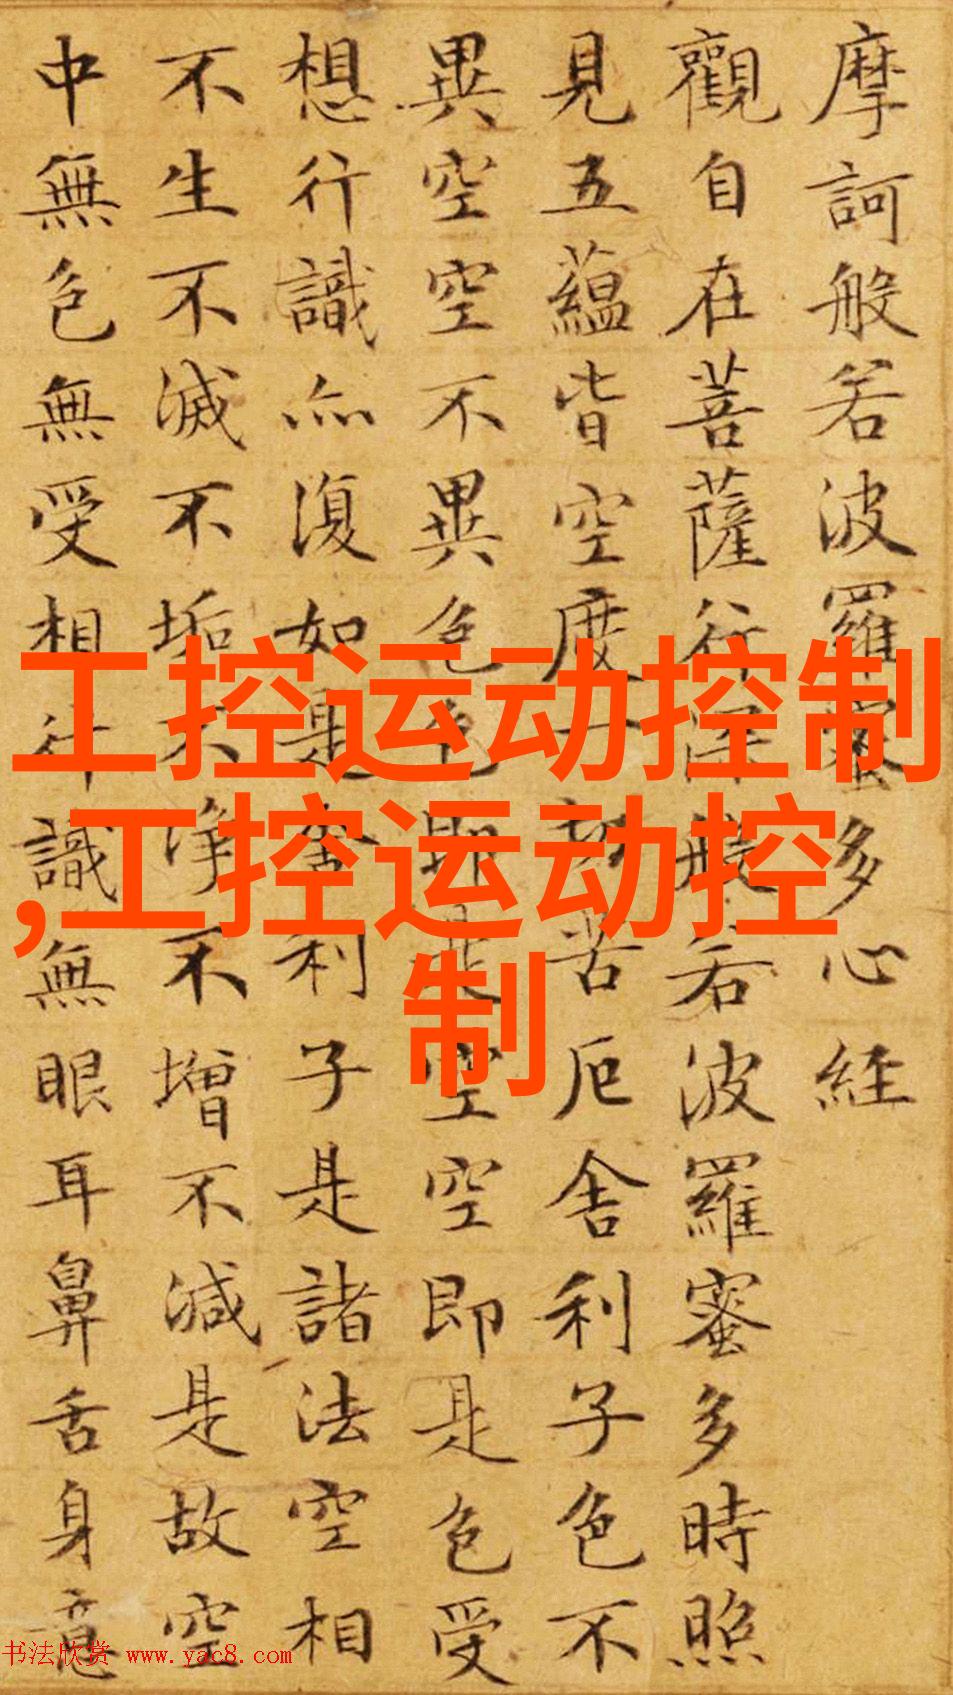 摩訶般若波羅蜜多心經
觀自在菩薩行深般若波羅蜜多時照
見五蘊皆空度一切苦厄舍利子色不
異空空不異色色即是空空即是色受
想行識亦復如是舍利子是諸法空相
不生不滅不垢不淨不增不減是故空
中無色無受想行識無眼耳鼻舌身意
工控运动控制
,工控运动控
制
书法欣赏 www.yac8.com